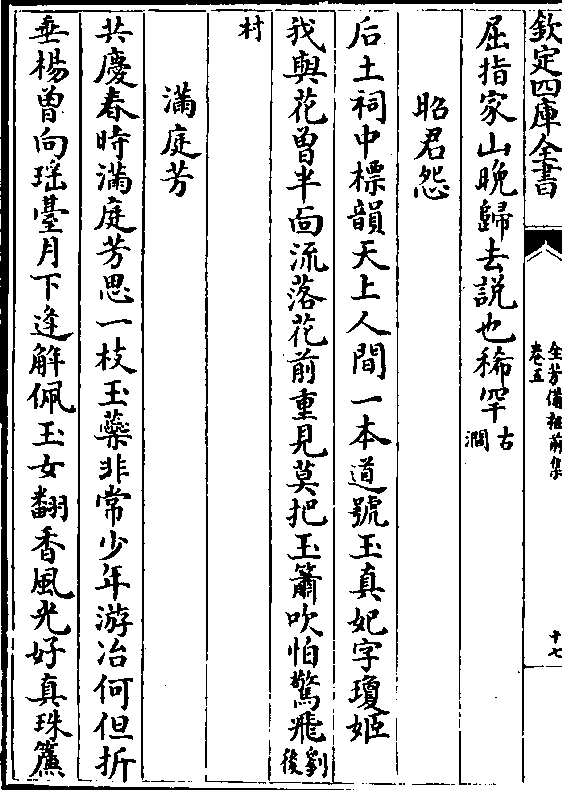 欽定四庫全書
全芳備祖前集
卷五
十七
屈指家山晩歸去説也稀罕古
澗
昭君怨
后土祠中標韻天上人間一本道號玉真妃字瓊姬
我與花曾半面流落花前重見莫把玉簫吹怕驚飛劉後
村
滿庭芳
共慶春時滿庭芳思一枝玉蘂非常少年游冶何但折
垂楊曾向瑶臺月下逢解佩玉女翻香風光好真珠簾